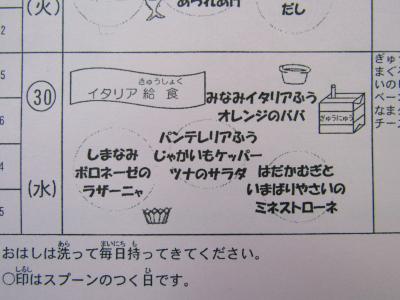 (火)
だし
30
(水)
きゅうしょく
イタリア給食
みなみイタリアふう
オレンジのババ
ぎゅうにゅう
パンテレリアふう
じゃがいもケッパー
ツナのサラダ
しまなみ
ボロネーゼの
ラザーニャ
はだかむぎと
いまばりやさいの
ミネストローネ
ぎゅ
まぐ
いの
ベー
なま
チー
おはしは洗あらって毎日まいにち持もってきてください。
○印しるしはスプーンのつく日ひです。